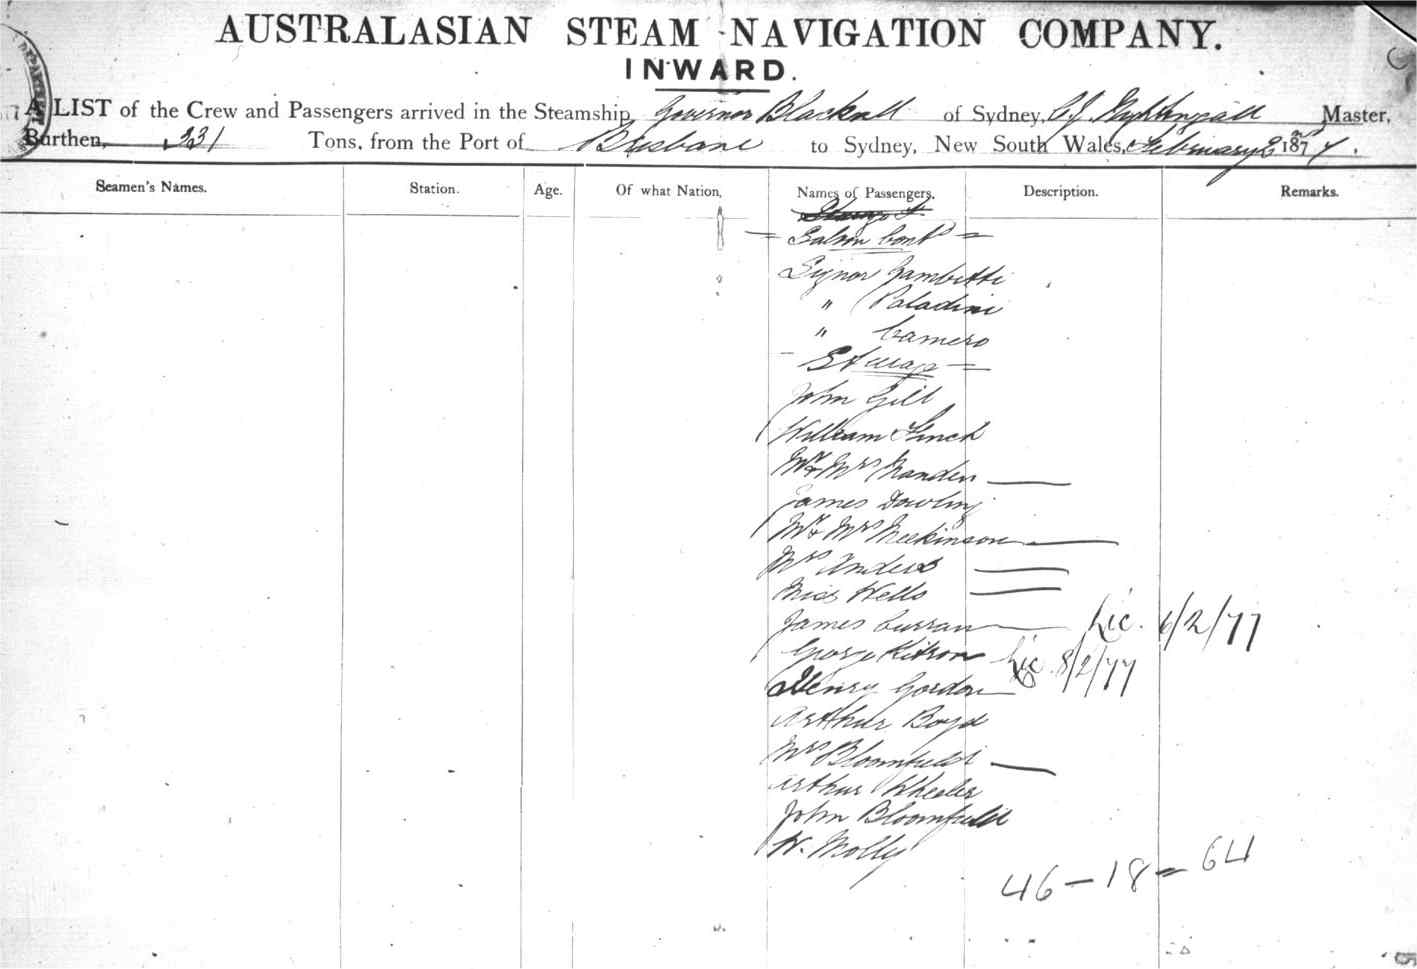 AUSTRALASIAN STEAM NAVIGATION COMPANY.
INWARD.
A LIST of the Crew and Passengers arrived in the Steamship, Governor Blackall of Sydney, Master,
Burthen, 331 Tons, from the Port of Brisbane to Sydney, New South Wales, February 2nd 1877.
Seamen's Names. Station. Age. Of what Nation, Names of Passengers. Description. Remarks.
= Saloon Contd =
Signor Zambetti
" Paladini
" Camero
- Steerage =
John Gill
William Finch
Mr & Mrs
James Dowling
Mr & Mrs Meekinson
Mrs Anders
Miss Wells
James Curran Lic. 6/2/77
George Kitson Lic 8/2/77
Henry Gordon
Arthur Boyd
Mrs Bloomfield
Arthur Wheeler
John Bloomfield
W. Molly
46 - 18 = 64